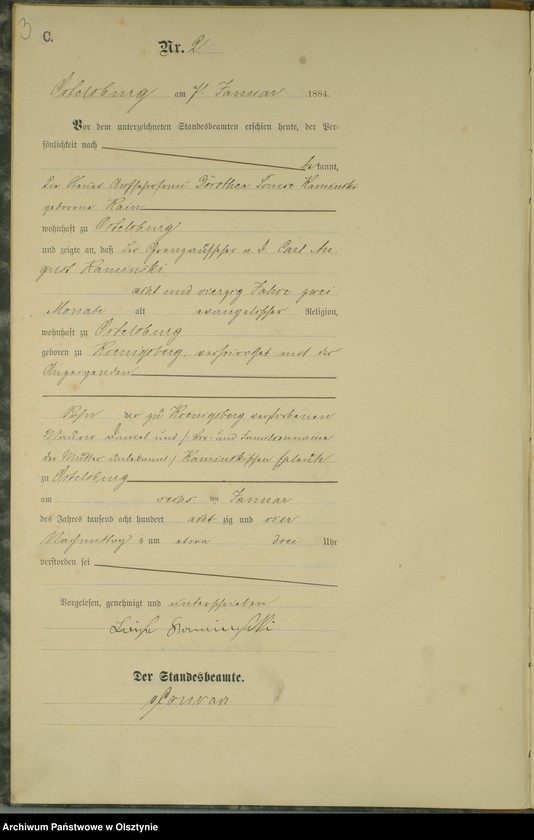 3
C.
Nr. 2
Ortelsburg am 7. Januar 1884.
Vor dem unterzeichneten Standesbeamten erschien heute, der Per-
sönlichkeit nach
bekannt,
die Aufseherfrau Dorothea Louise Kaminski
geborene Kaim
wohnhaft zu Ortelsburg
und zeigte an, daß der Grenzaufseher a. D. Carl Au-
gust Kaminski
acht und vierzig Jahre zwei
Monate alt evangelischer Religion,
wohnhaft zu Ortelsburg
geboren zu Koenigsberg, verheirathet mit der
Anzeigenden
Sohn der zu Koenigsberg verstorbenen
Maurer Daniel und / Vor- und Familienname
der Mutter unbekannt / Kaminskischen Eheleute
zu Ortelsburg
am sechs ten Januar
des Jahres tausend acht hundert acht zig und vier
Nachmittags um etwa drei Uhr
verstorben sei
Vorgelesen, genehmigt und unterschrieben
Luise Kaminski
Der Standesbeamte.
Conrad
Archiwum Państwowe w Olsztynie